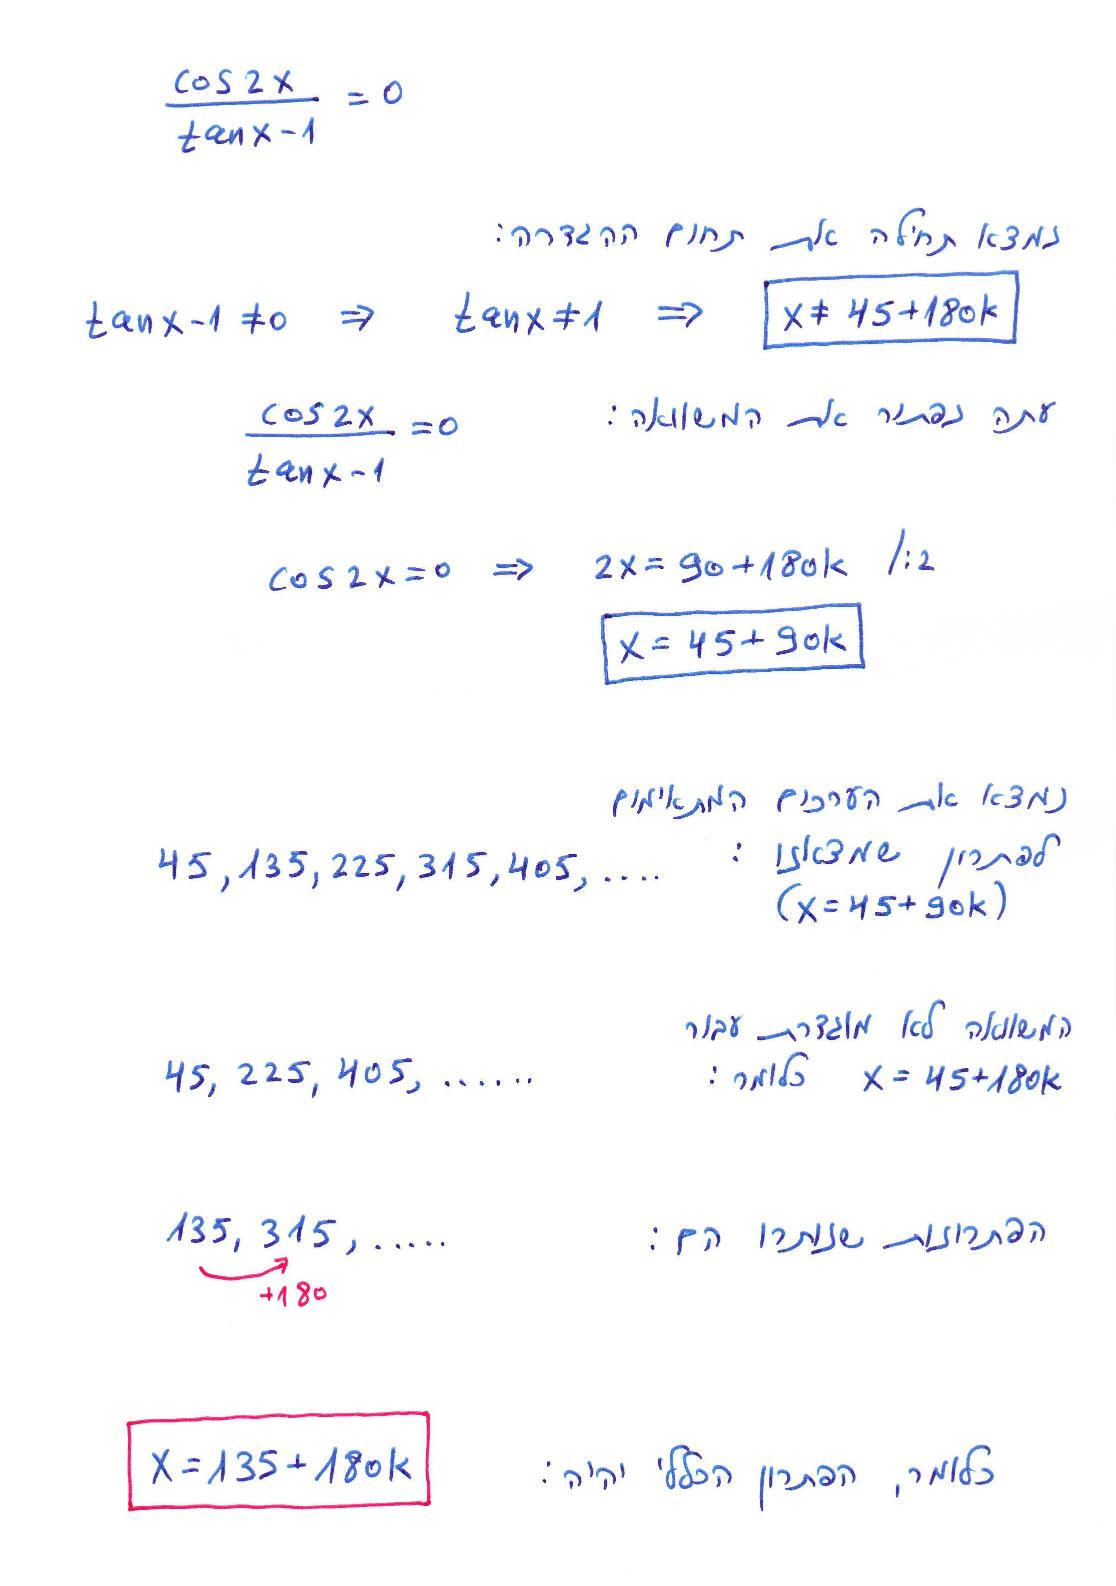 cos2x / tanx-1 = 0
נמצא תחילה את תחום ההגדרה:
tanx-1 ≠ 0 ⇒ tanx ≠ 1 ⇒ x ≠ 45+180k
עתה נפתור את המשוואה: cos2x / tanx-1 = 0
cos2x = 0 ⇒ 2x = 90+180k /:2
x = 45+90k
נמצא את הערכים המתאימים
לפתרון שמצאנו: 45, 135, 225, 315, 405, ....
(x=45+90k)
המשוואה לא מוגדרת עבור
x = 45+180k כלומר: 45, 225, 405, ......
הפתרונות שנותרו הם: 135, 315, .....
+180
כלומר, הפתרון הכללי יהיה: x = 135+180k